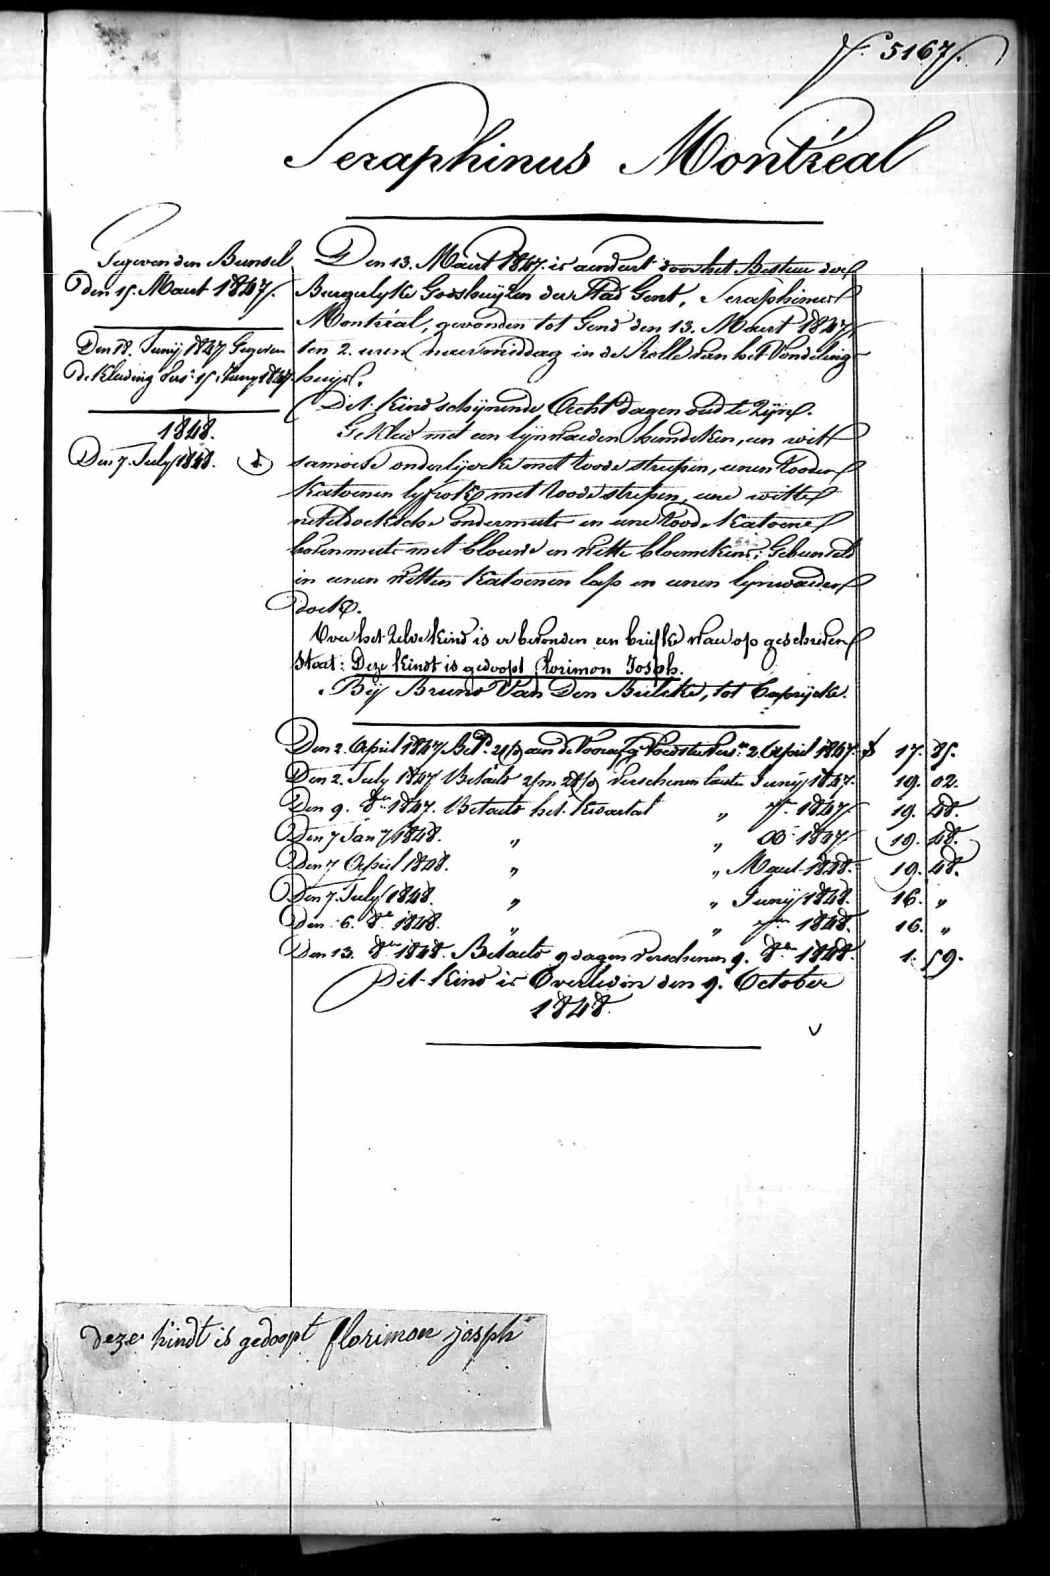 N.º 5167.
Seraphinus Montréal
Gegeven den Bunsel
den 15. Maart 1847.
Den 18. Junij 1847 Gegeven
de Kleeding Vers: 15 Juny 1847.
1848.
Den 7. July 1848.
Den 13. Maart 1847. is aenveert door het Bestuer der
Burgerlyke Godshuyzen der Stad Gent, Seraphinus
Montréal, gevonden tot Gend den 13. Maart 1847
ten 2. uren naermiddag in de Rolle van het Vondeling
huys.
Dit kind schynende Acht dagen oud te Zyn.
Gekleed met een lynwaeden hemdeken, een wit
samoese onderlyveke met roode strepen, eenen rooden
Katoenen lyfrok met roode strepen, eene witte
neteldoeksche ondermuts en eene roode Katoene
bovenmuts met blouwe en witte bloemekens; Gebunseld
in eenen witten Katoenen lap en eenen lynwaeden
doek.
Over het zelve kind is er bevonden een briefke waer op geschreven
staet: Deze kindt is gedoopt florimon Josph.
Bij Bruno Van Den Bulcke, tot Caprycke.
Den 2. April 1847 Bet.d aen de Voorz. Voedster Vers.n 2. April 1847. f 17. 85.
Den 2. July 1847 Betaeld Verschenen laesten Junij 1847. 19. 02.
Den 9. 8.er 1847. Betaeld het Kwartal " 7.r 1847 19. 48.
Den 7 Jan.y 1848. " " X.r 1847 19. 48.
Den 7 April 1848. " " Maart 1848. 19. 48.
Den 7. July 1848. " " Junij 1848. 16. "
Den 6. 8.er 1848. " " 7.er 1848. 16. "
Den 13. 8.er 1848. Betaeld 9 dagen Verschenen 9. 8.er 1848. 1. 59.
Dit kind is Overleden den 9. October
1848.
deze kindt is gedoopt florimon josph